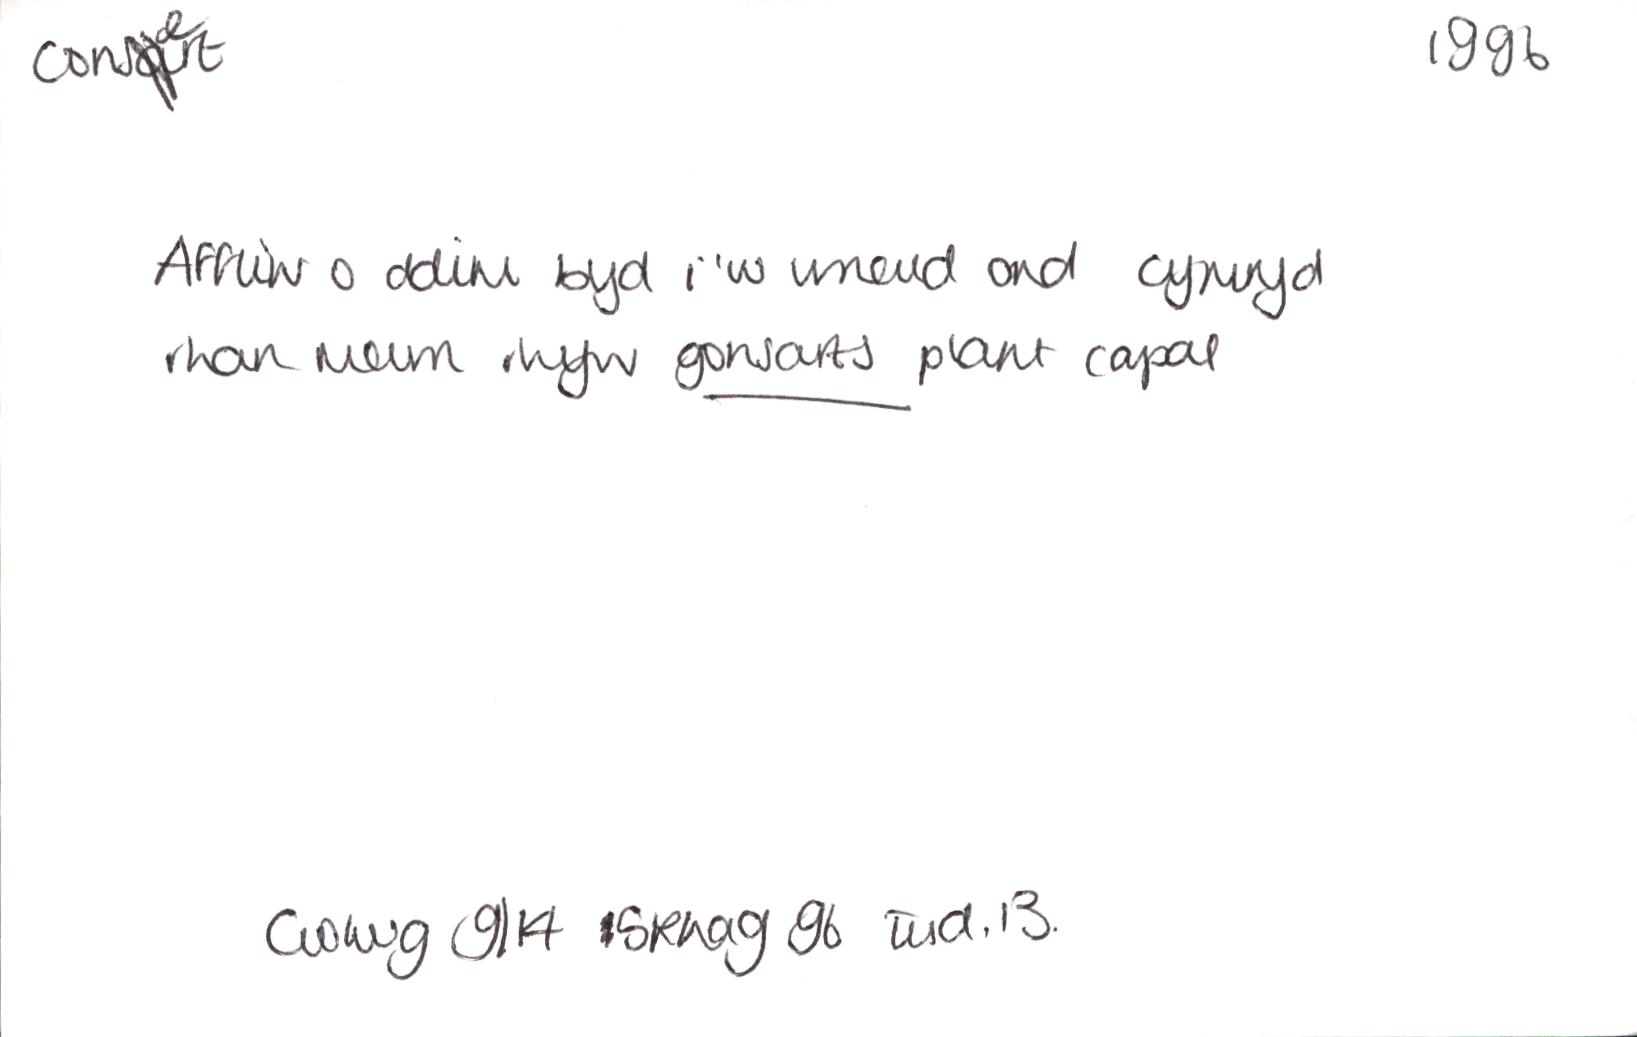 consert 1996
Affliw o ddim byd i'w wneud ond cymryd
rhan mewn rhyw gonsarts plant capal
Golwg 9/14 5Rhag 96 tud. 13.